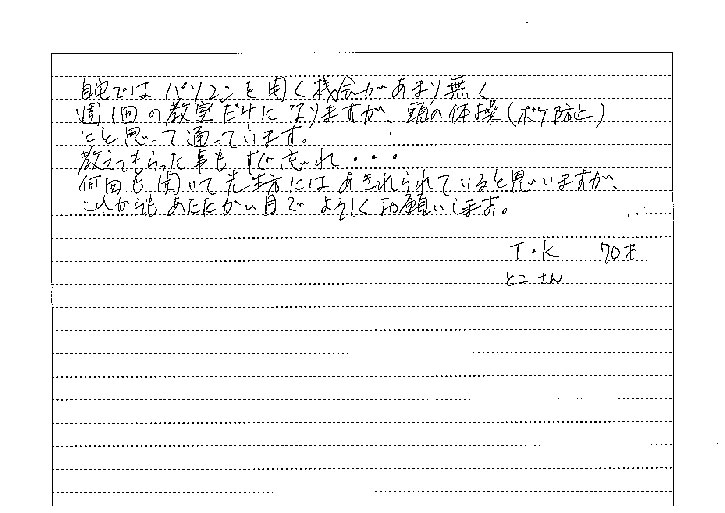 自宅ではパソコンを開く機会があまり無く
週1回の教室だけになりますが、頭の体操(ボケ防止)
にと思って通っています。
教えてもらった事もすぐ忘れ・・・
何回も聞いて先生方にはあきれられていると思いますが、
これからもあたたかい目でよろしくお願いします。
T・K 70才
とこさん